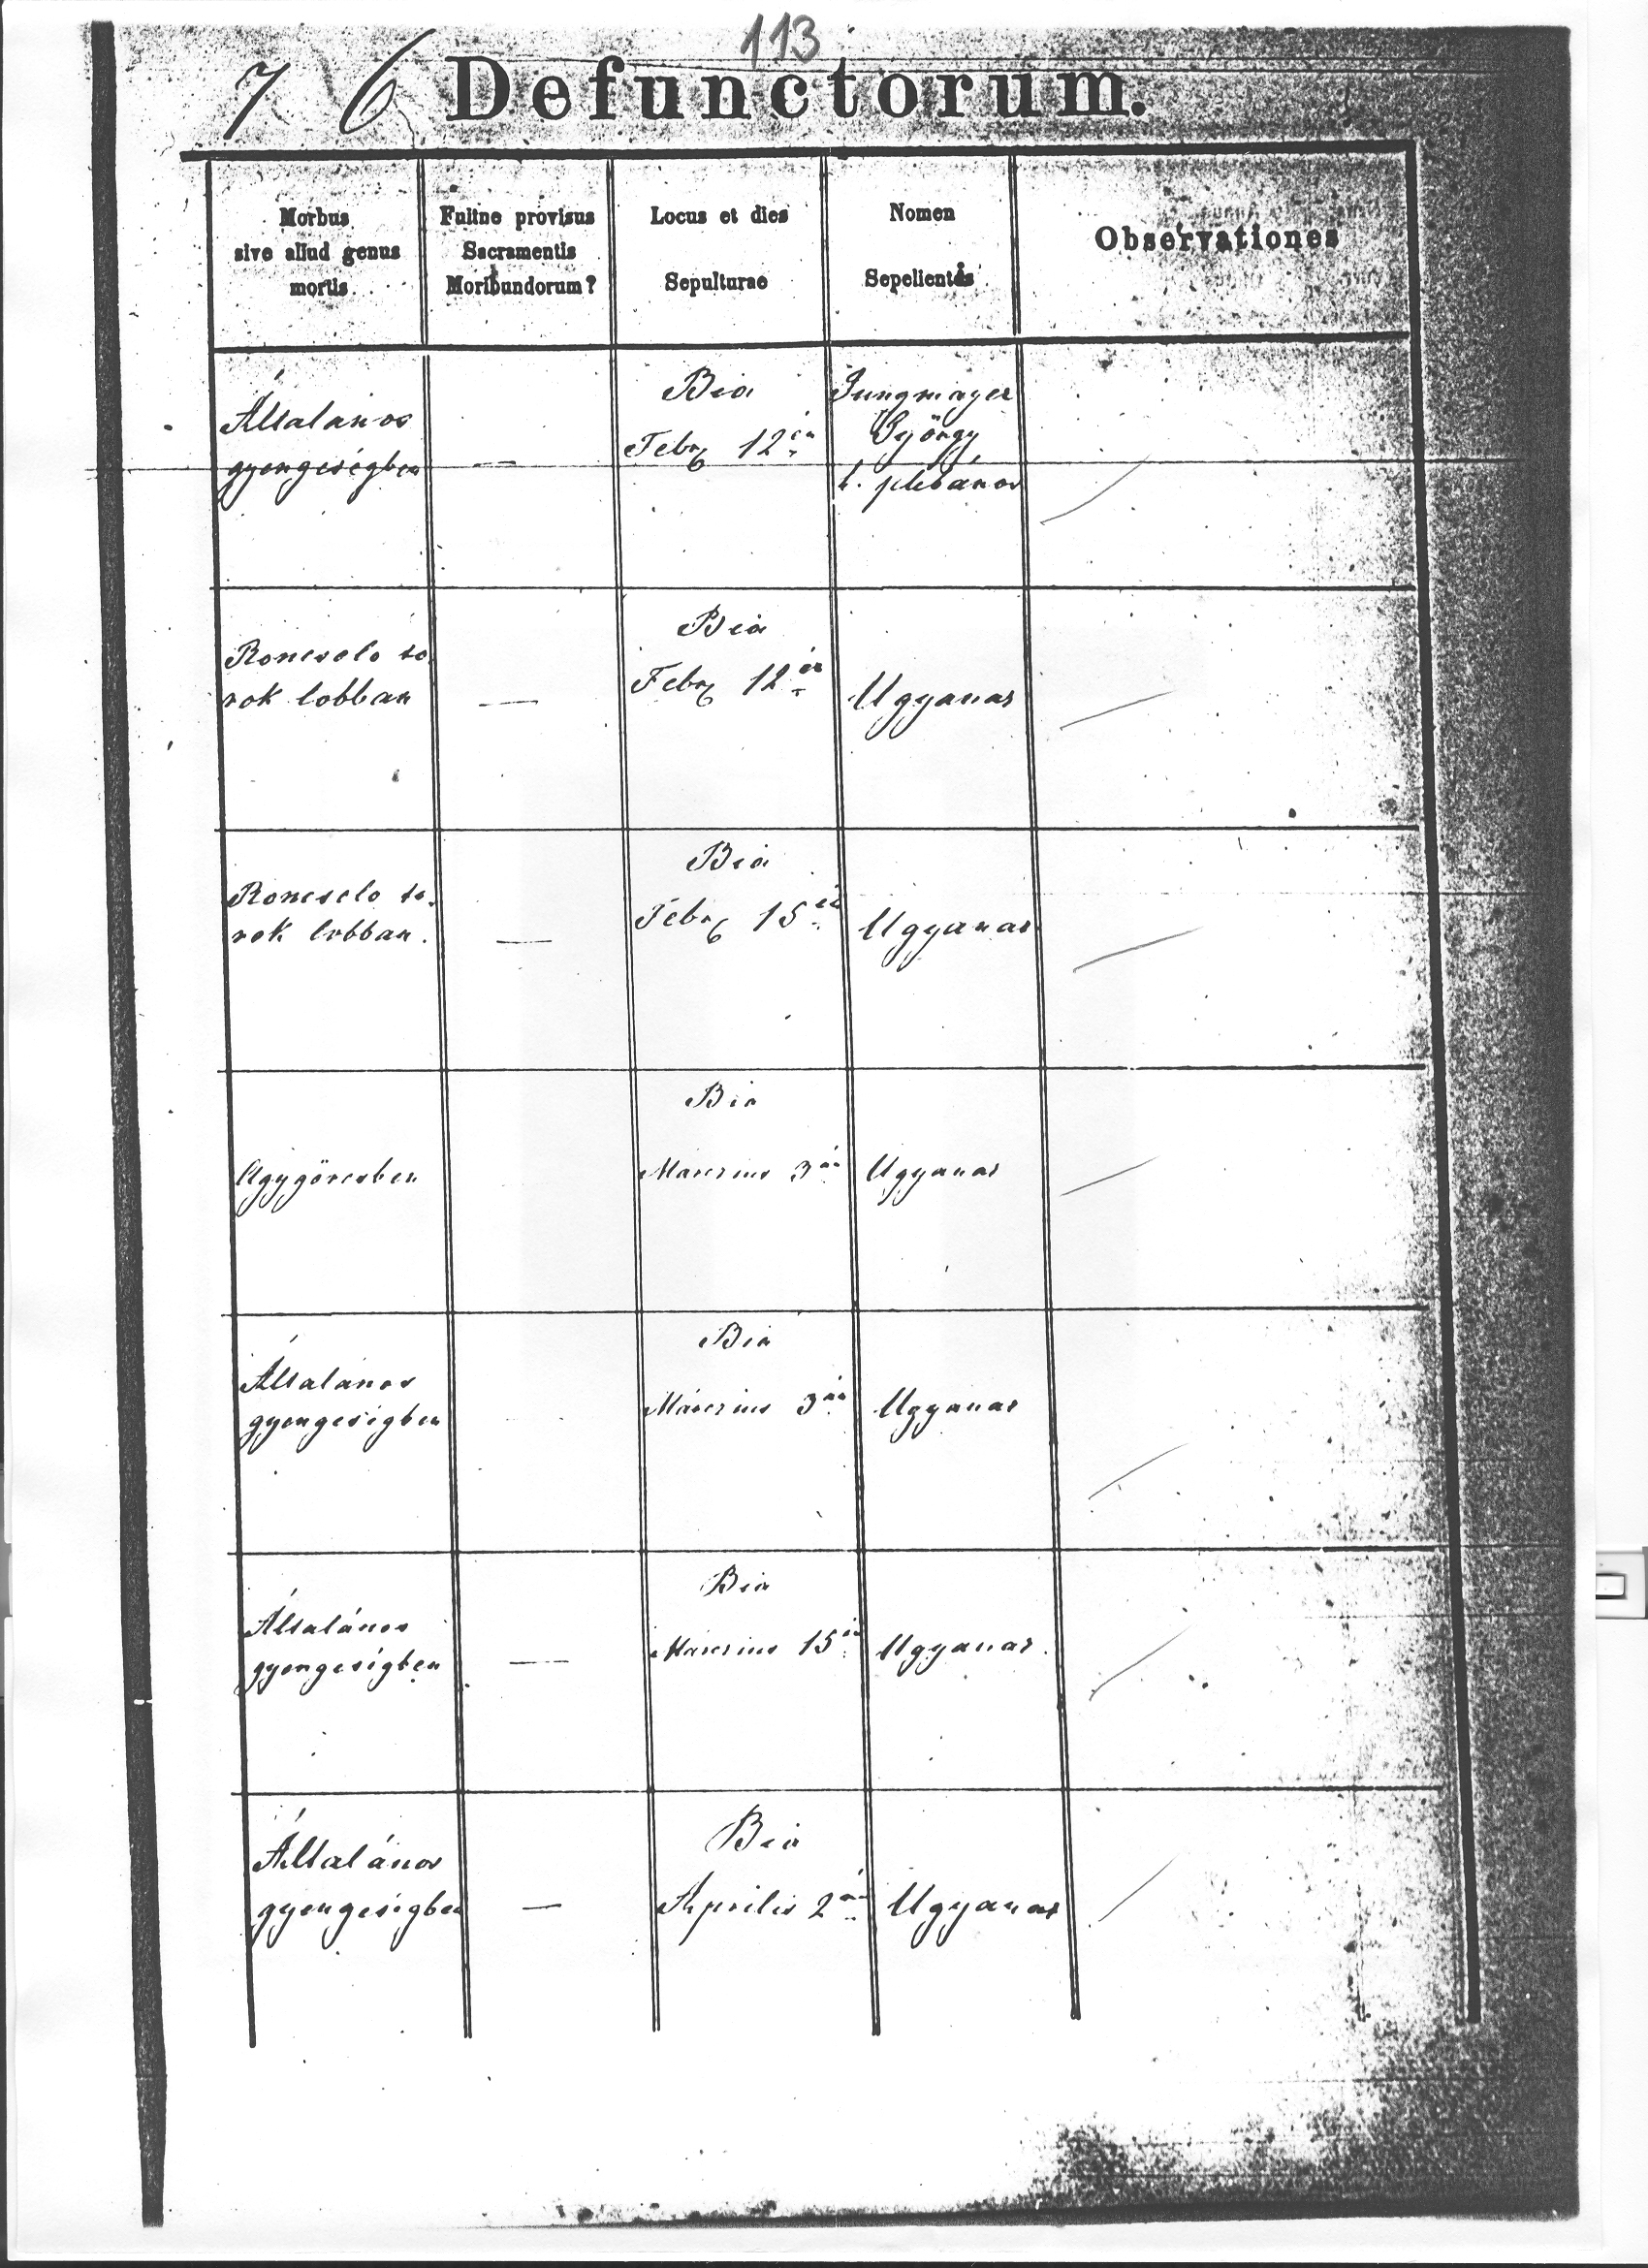 113
7 6 Defunctorum.
Morbus
sive aliud genus
mortis
Fuitne provisus
Sacramentis
Moribundorum?
Locus et dies
Sepulturae
Nomen
Sepelientis
Observationes
Általános
gyengeségben
—
Bia
Febr 12én
Jungmayer
György
h. plébános
Roncsoló to
rok lobban
—
Bia
Febr 12én
Ugyanaz
Roncsoló to.
rok lobban.
—
Bia
Febr 15én
Ugyanaz
Agygörcsben
Bia
Márczius 3án
Ugyanaz
Általános
gyengeségben
Bia
Márczius 3án
Ugyanaz
Általános
gyengeségben
—
Bia
Márczius 15én
Ugyanaz
Általános
gyengeségben
—
Bia
Aprilis 2án
Ugyanaz